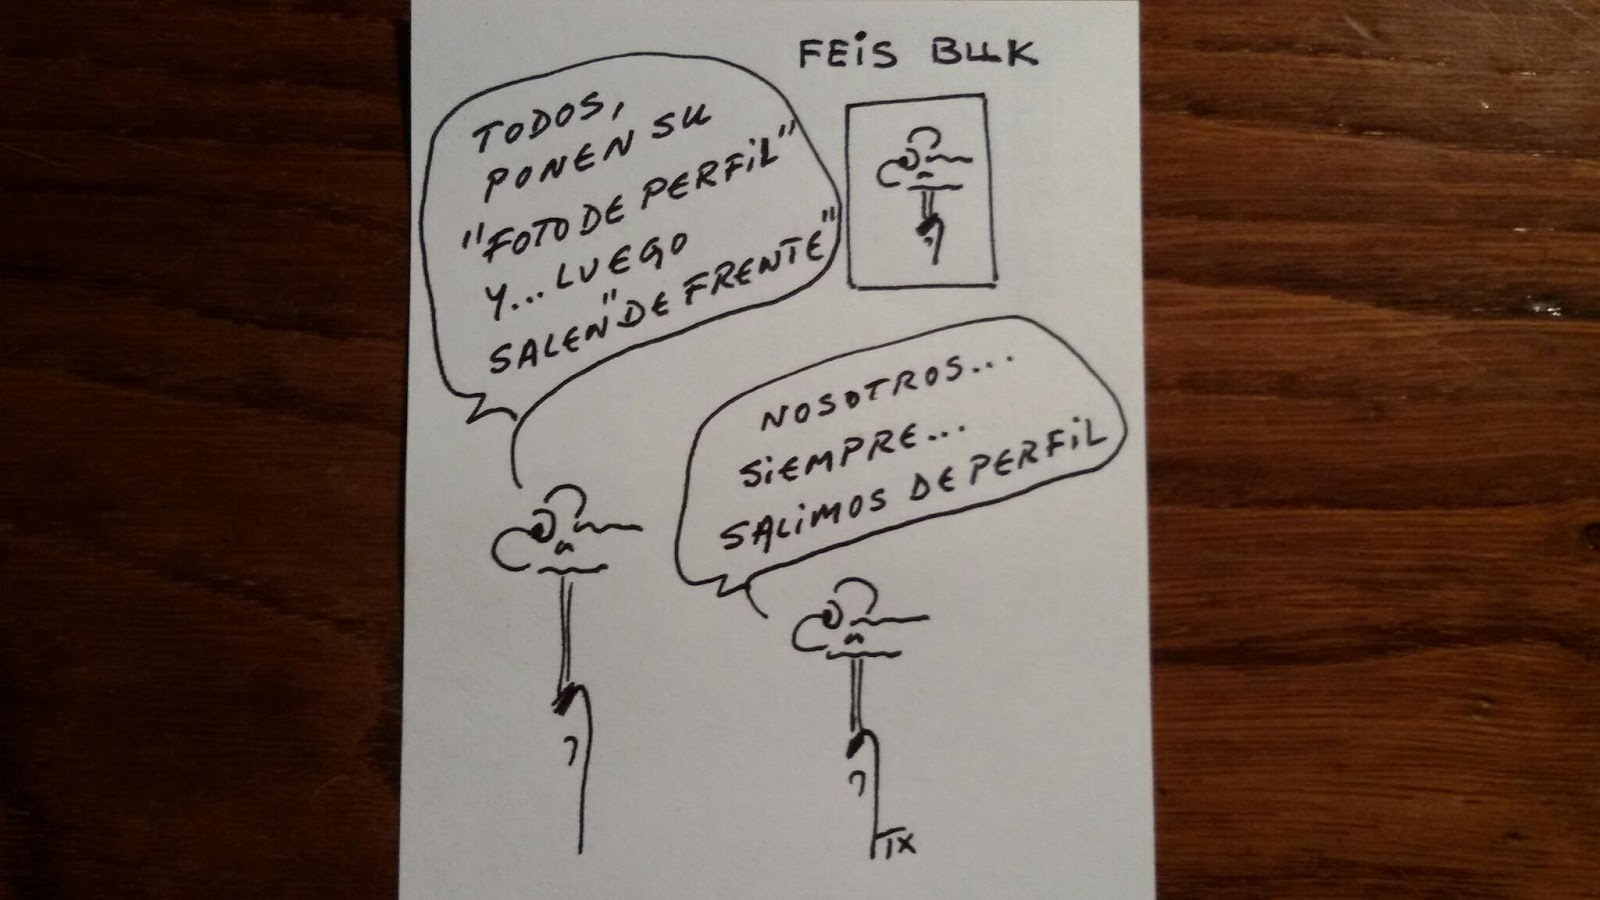 FEiS BUK
TODOS,
PONEN SU
"FOTO DE PERFiL"
Y... LUEGO
SALEN "DE FRENTE"
NOSOTROS...
SiEMPRE...
SALiMOS DE PERFiL
TX